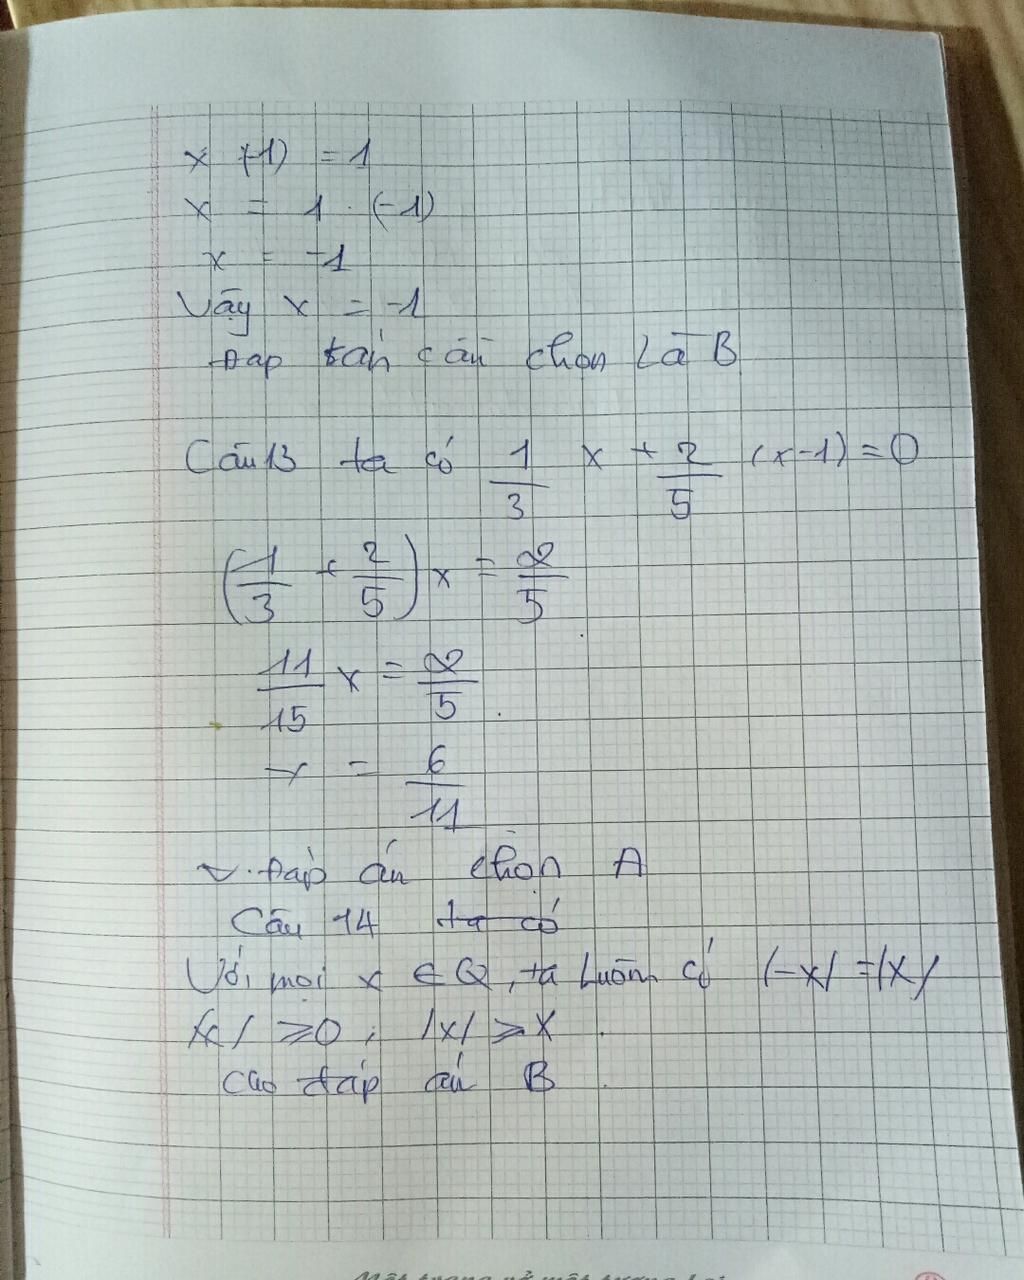 x (-1) = 1
x = 1 . (-1)
x = -1
Vậy x = -1
Đap tán cần chọn Là B
Câu 13 ta có 1/3 x + 2/5 (x-1) = 0
(1/3 + 2/5) x = 2/5
11/15 x = 2/5
x = 6/11
Đáp án chọn A
Câu 14 ta có
Với mọi x ∈ Q, ta Luôn có |-x| = |x|
|x| ≥ 0, |x| ≥ x
đáp án B